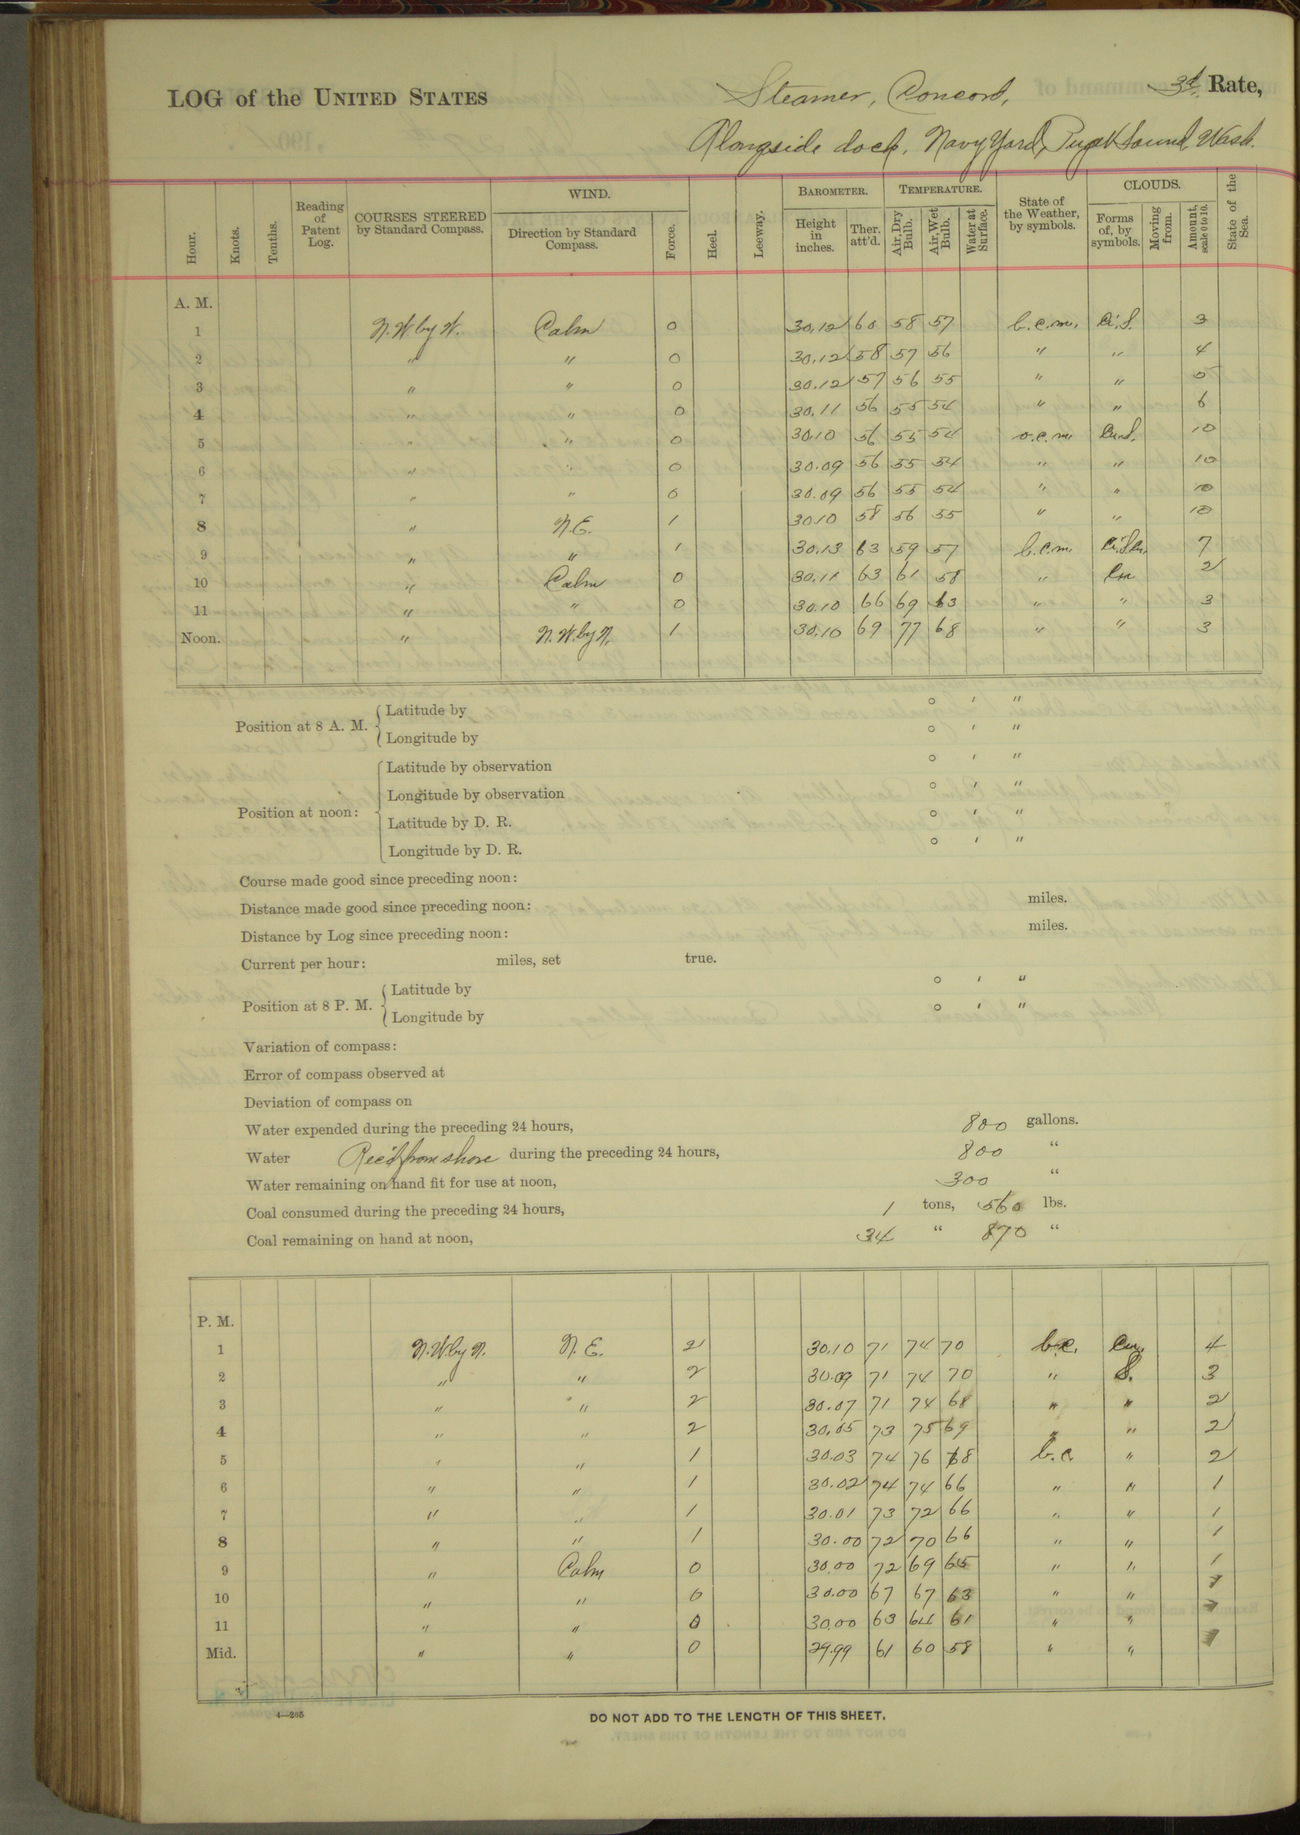 LOG of the UNITED STATES Steamer, Concord, 3d Rate,
Alongside dock, Navy Yard, Puget Sound, Wash.
Hour. Knots. Tenths. Reading of Patent Log. COURSES STEERED by Standard Compass. WIND. Direction by Standard Compass. Force. Heel. Leeway. BAROMETER. Height in inches. Ther. att'd. TEMPERATURE. Air, Dry Bulb. Air, Wet Bulb. Water at Surface. State of the Weather, by symbols. CLOUDS. Forms of, by symbols. Moving from. Amount, scale 0 to 10. State of the Sea.
A. M.
1 N.W. by W. Calm 0 30.12 60 58 57 b.c.m. Ci.S. 3
2 " " 0 30.12 58 57 56 " " 4
3 " " 0 30.12 57 56 55 " " 5
4 " " 0 30.11 56 55 54 " " 6
5 " " 0 30.10 56 55 54 o.c.m. Cu.S. 10
6 " " 0 30.09 56 55 54 " " 10
7 " " 0 30.09 56 55 54 " " 10
8 " N.E. 1 30.10 58 56 55 " " 10
9 " " 1 30.13 63 59 57 b.c.m. 7
10 " Calm 0 30.11 63 61 58 " Cu 2
11 " " 0 30.10 66 69 63 " " 3
Noon. " N.W. by N. 1 30.10 69 77 68 " " 3
Position at 8 A. M. Latitude by ° ' "
Longitude by ° ' "
Position at noon: Latitude by observation ° ' "
Longitude by observation ° ' "
Latitude by D. R. ° ' "
Longitude by D. R. ° ' "
Course made good since preceding noon:
Distance made good since preceding noon: miles.
Distance by Log since preceding noon: miles.
Current per hour: miles, set true.
Position at 8 P. M. Latitude by ° ' "
Longitude by ° ' "
Variation of compass:
Error of compass observed at
Deviation of compass on
Water expended during the preceding 24 hours, 800 gallons.
Water Rec'd from shore during the preceding 24 hours, 800 "
Water remaining on hand fit for use at noon, 300 "
Coal consumed during the preceding 24 hours, 1 tons, 560 lbs.
Coal remaining on hand at noon, 34 " 870 "
P. M.
1 N.W. by N. N.E. 2 30.10 71 74 70 b.c. Cu. 4
2 " " 2 30.09 71 74 70 " S. 3
3 " " 2 30.07 71 74 68 " " 2
4 " " 2 30.05 73 75 69 " " 2
5 " " 1 30.03 74 76 68 b.c. " 2
6 " " 1 30.02 74 74 66 " " 1
7 " " 1 30.01 73 72 66 " " 1
8 " " 1 30.00 72 70 66 " " 1
9 " Calm 0 30.00 72 69 65 " " 1
10 " " 0 30.00 67 67 63 " "
11 " " 0 30.00 63 64 61 " "
Mid. " " 0 29.99 61 60 58 " "
4—265
DO NOT ADD TO THE LENGTH OF THIS SHEET.